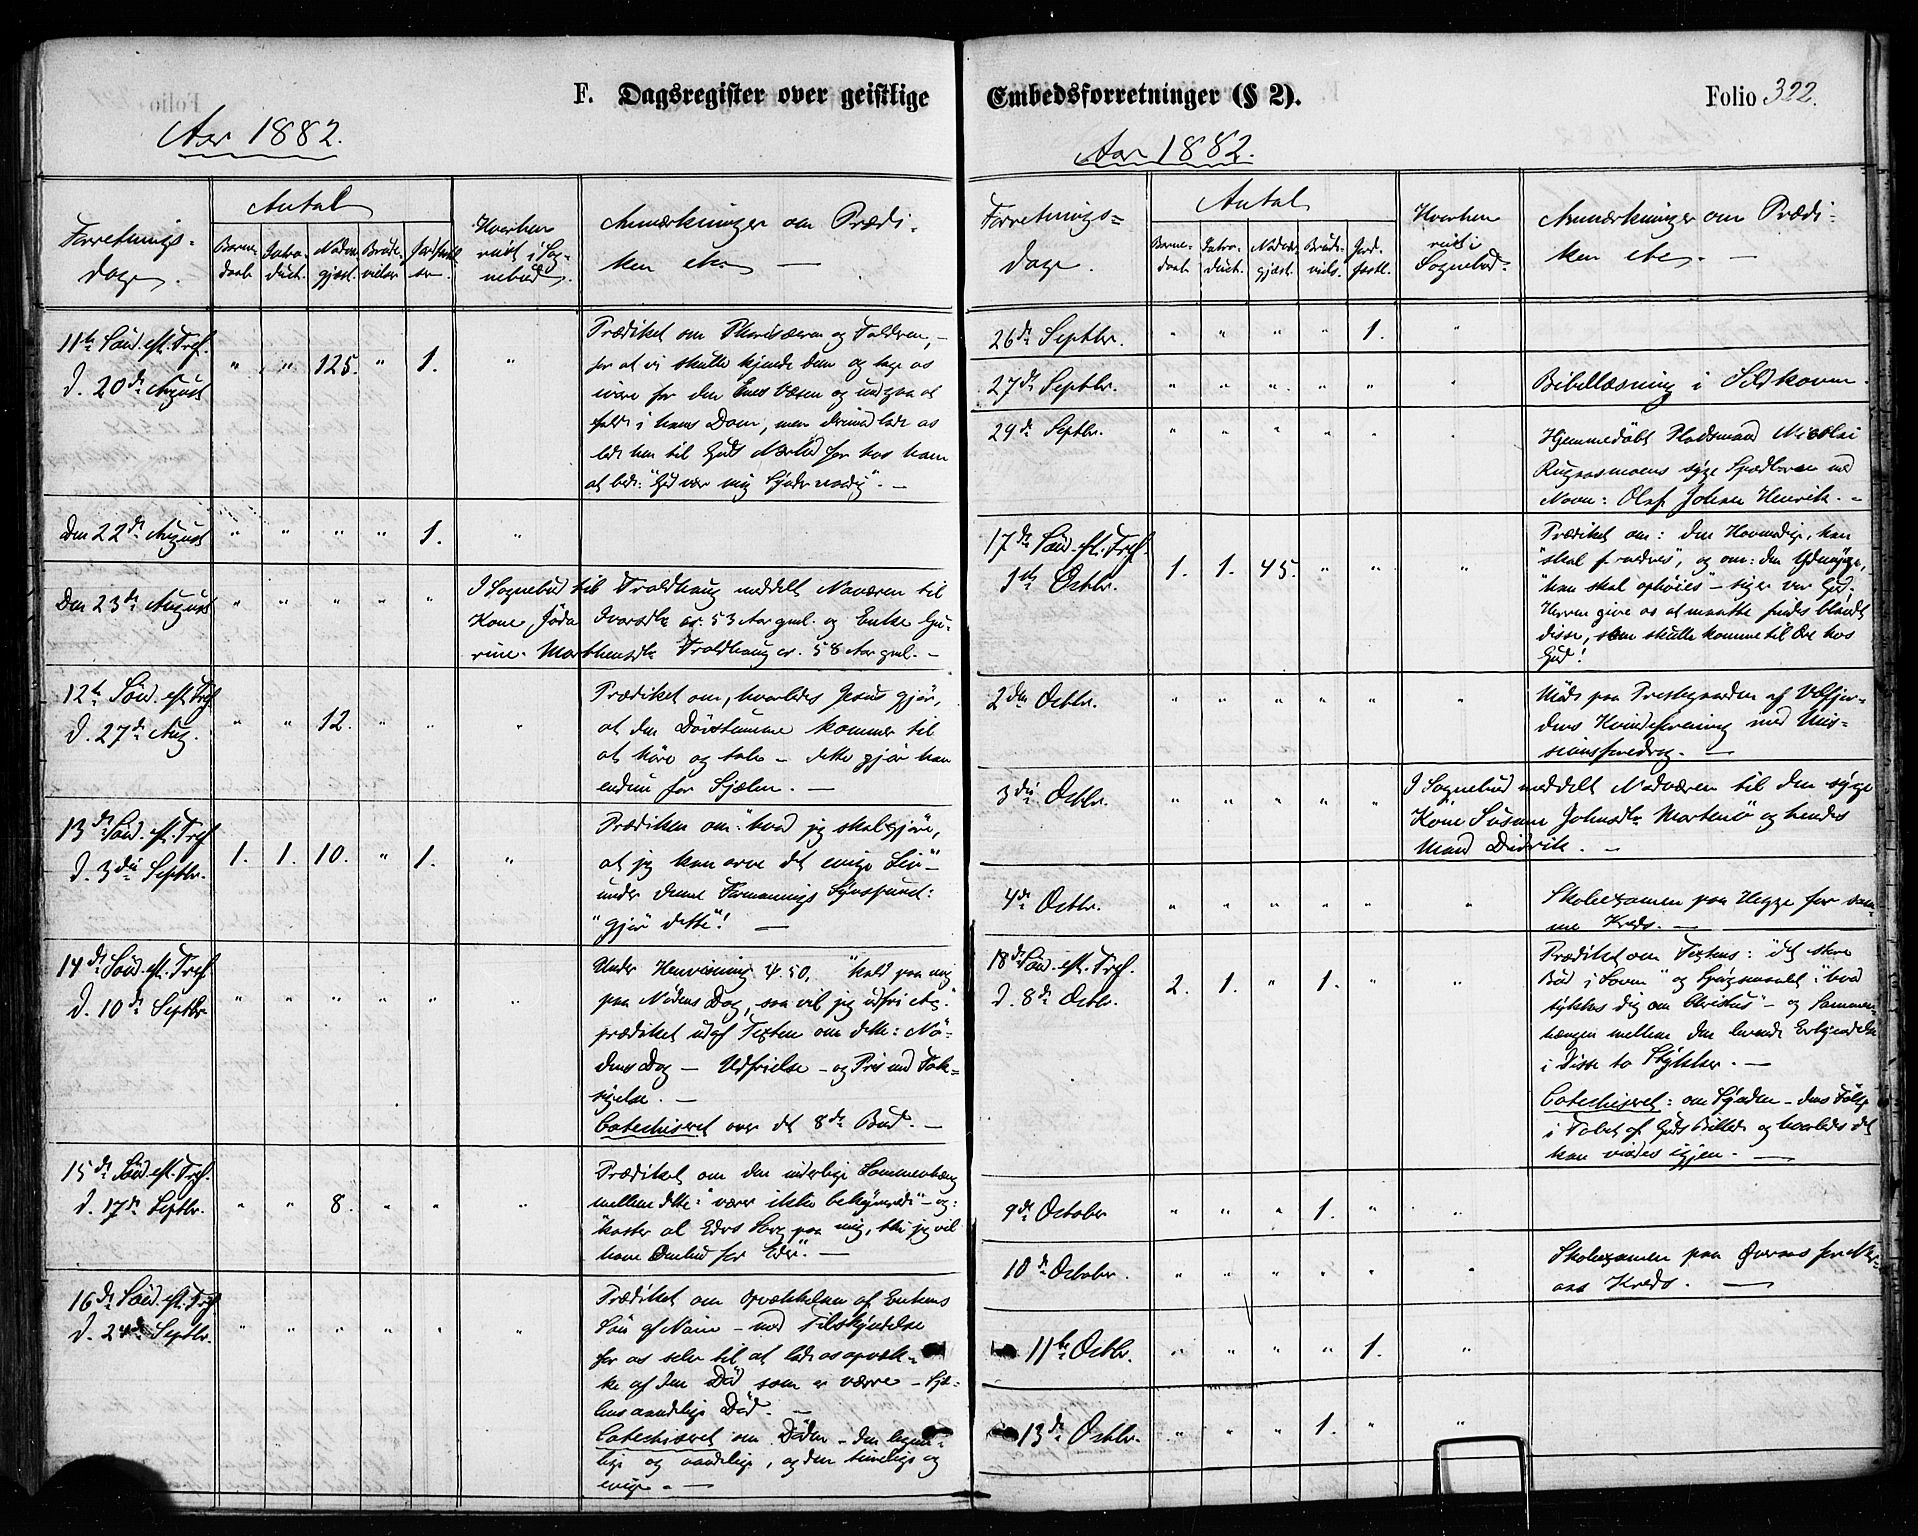 F. Dagsregister over geistlige
Aar 1882.
Forretnings-
dage.
Antal
Barne-
daab
Intro-
duct.
Nadver-
gjæst.
Brude-
vielser
Jordfæstel-
ser
Hvorhen
reist i Sog-
nebud.
Anmærkninger om Prædi-
ken etc. —
11te Sönd. eft. Tref.
d. 20de August
" " 125. " 1. "
Prædiket om Pharisæeren og Tolderen, -
for at vi skulle kjende dem og tage os
ivare for den Enes Væsen og undgaa at
falde i hans Dom, men derimod lade os
lede hen til Guds Naade for hos ham
at bede: "Gud vær mig Synder naadig". -
Den 22de August " " " " 1. "
Den 23de August " " " " "
I Sognebud til Troldhaug meddelt Nadveren til
Kone Ivarsdtr. er 53 Aar gml. og Enke Gu-
rine Marthensdtr Troldhaug er 58 Aar gml. -
12te Sönd. eft. Tref.
d. 27de Aug.
" " 12. " " "
Prædiket om, hvorledes Jesus gjör,
at den Dövstumme kommer til
at höre og tale - dette gjör han
endnu for Sjælen. —
13de Sönd. eft. Tref.
d. 3die Septbr.
1. 1. 10. " 1. "
Prædiken om "hvad jeg skal gjöre,
at jeg kan arve det evige Liv" -
under denne Formanings Synspunct:
"gjör dette"! —
14de Sönd. eft. Tref.
d. 10de Septbr.
" " " " " "
Under Henvisning 50, "kald paa mig
paa Nödens Dag, saa vil jeg udfri dig"
prædiket udaf Texten om dette: Nö-
dens Dag - Udfrielse - og Pris med Tak-
sigelse. —
Catechiseret over det 8de Bud. -
15de Sönd. eft. Tref.
d. 17de Septbr.
" " 8. " " "
Prædiket om den inderlige Sammenhæng
mellem dette: "værer ikke bekymrede" - og:
"kaster al Eders Sorg paa mig, thi jeg vil
have Omhu for Eder". —
16de Sönd. eft. Tref.
d. 24de Septbr.
" " " " " "
Prædiket om Opvækkelsen af Enkens
Sön af Nain - med Tilskyndelse
for os selv til at lade os opvæk-
ke af den Död som er værre - Sjæ-
lens aandelige Död. —
Catechiseret om Döden - den legem-
lige og aandelige, og den timelige og
evige. —
Embedsforretninger (§ 2).
Folio 322.
Aar 1882.
Forretnings-
dage.
Antal
Barne-
daab
Intro-
duct.
Nadver-
gjæst.
Brude-
viels.
Jord-
fæstl.
Hvorhen
reist i
Sognebud.
Anmærkninger om Prædi-
ken etc. —
26de Septbr. " " " " 1. "
27de Septbr. " " " " " " Bibellæsning i Sildhovn.
29de Septbr. " " " " " "
Hjemmedöbt Pladsmand Nicolai
syge Spædbarn med
Navn: Olaf Johan Henrik. -
17de Sönd. eft. Tref.
1ste Octbr.
1. 1. 45. " " "
Prædiket om: den Hovmodige, han
"skal fornedres", og om: den Ydmyge,
"han skal ophöies" - siger vor Gud.
Herren give os at maatte findes blandt
disse, som skulle komme til Ære hos
Gud!
2den Octbr. " " " " " "
Möde paa Præstegaarden af Velfjor-
dens Kvindeforening med Mis-
sionsforedrag. —
3die Octbr. " " " " "
I Sognebud meddelt Nadveren til den syge
Kone Susanne Johnsdtr. Martenö og hendes
Mand Didrik. -
4de Octbr. " " " " " "
Skoleexamen paa Hegge for sam-
me Kreds. —
18de Sönd. eft. Tref.
d. 8de Octbr.
2. 1. " 1. " "
Prædiket om Textens: "det store
Bud i Loven" og Spögsmaalet: "hvad
tykkes dig om Christus" - og Sammen-
hængen mellem den levende Erkjendelse
i disse to Stykker. —
Catechiseret: om Synden - dens Fölge
i Tabet af Guds Billede og hvorledes det
kan vindes igjen. —
9de October " " " 1. " "
10de October. " " " " " "
Skoleexamen paa Överaas for
aas Kreds. —
11te Octbr. " " " " 1. "
13de Octbr. " " " 1. " "